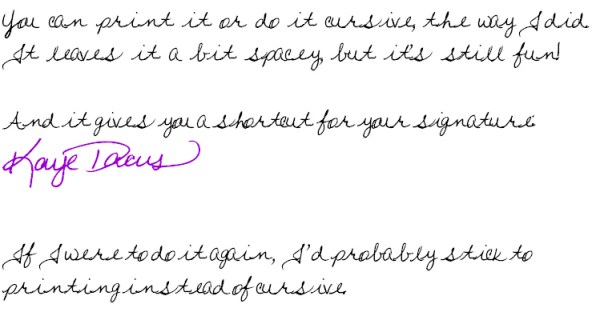 You can print it or do it cursive, the way I did.
It leaves it a bit spacey, but it's still fun!
And it gives you a shortcut for your signature.
Kaye Dacus
If I were to do it again, I'd probably stick to
printing instead of cursive.